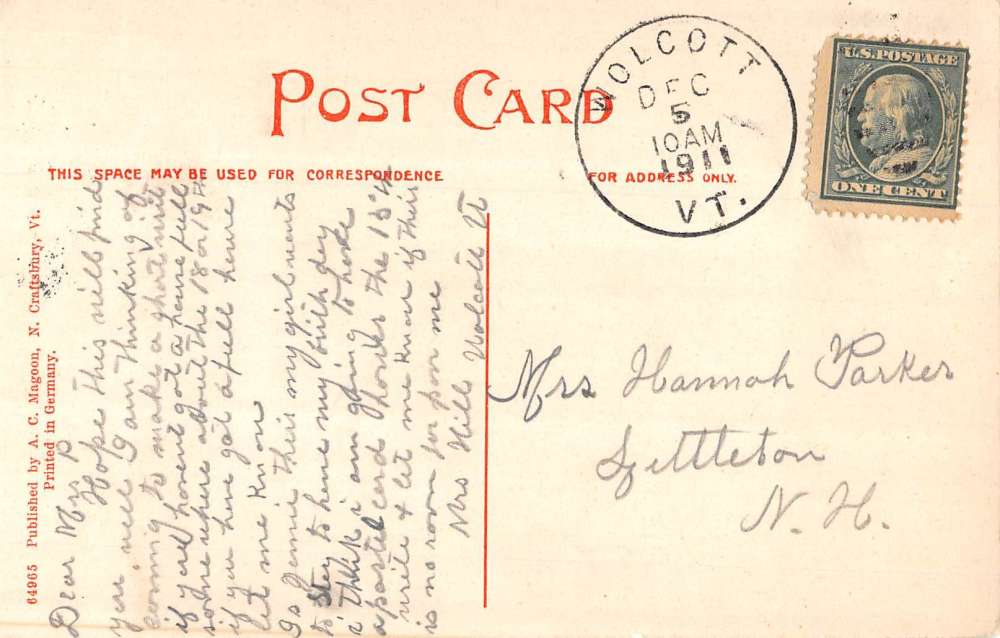 POST CARD
THIS SPACE MAY BE USED FOR CORRESPONDENCE
FOR ADDRESS ONLY.
WOLCOTT
DEC
5
10AM
1911
VT.
U.S. POSTAGE
ONE CENT
64965 Published by A. C. Magoon, N. Craftsbury, Vt.
Printed in Germany.
Dear Mrs P
Hope this will find
you well I am thinking of
coming to make a short visit
if you havent got a house full
somewhere about the 18 or 19th
if you have got a full house
let me know
Is Jennie their my girl wants
to stay to have my birth day
i think i am going to have
a postal card the 15th
write & let me know if their
is no room for me
Mrs Hill Wolcott Vt
Mrs Hannah Parker
Littleton
N. H.